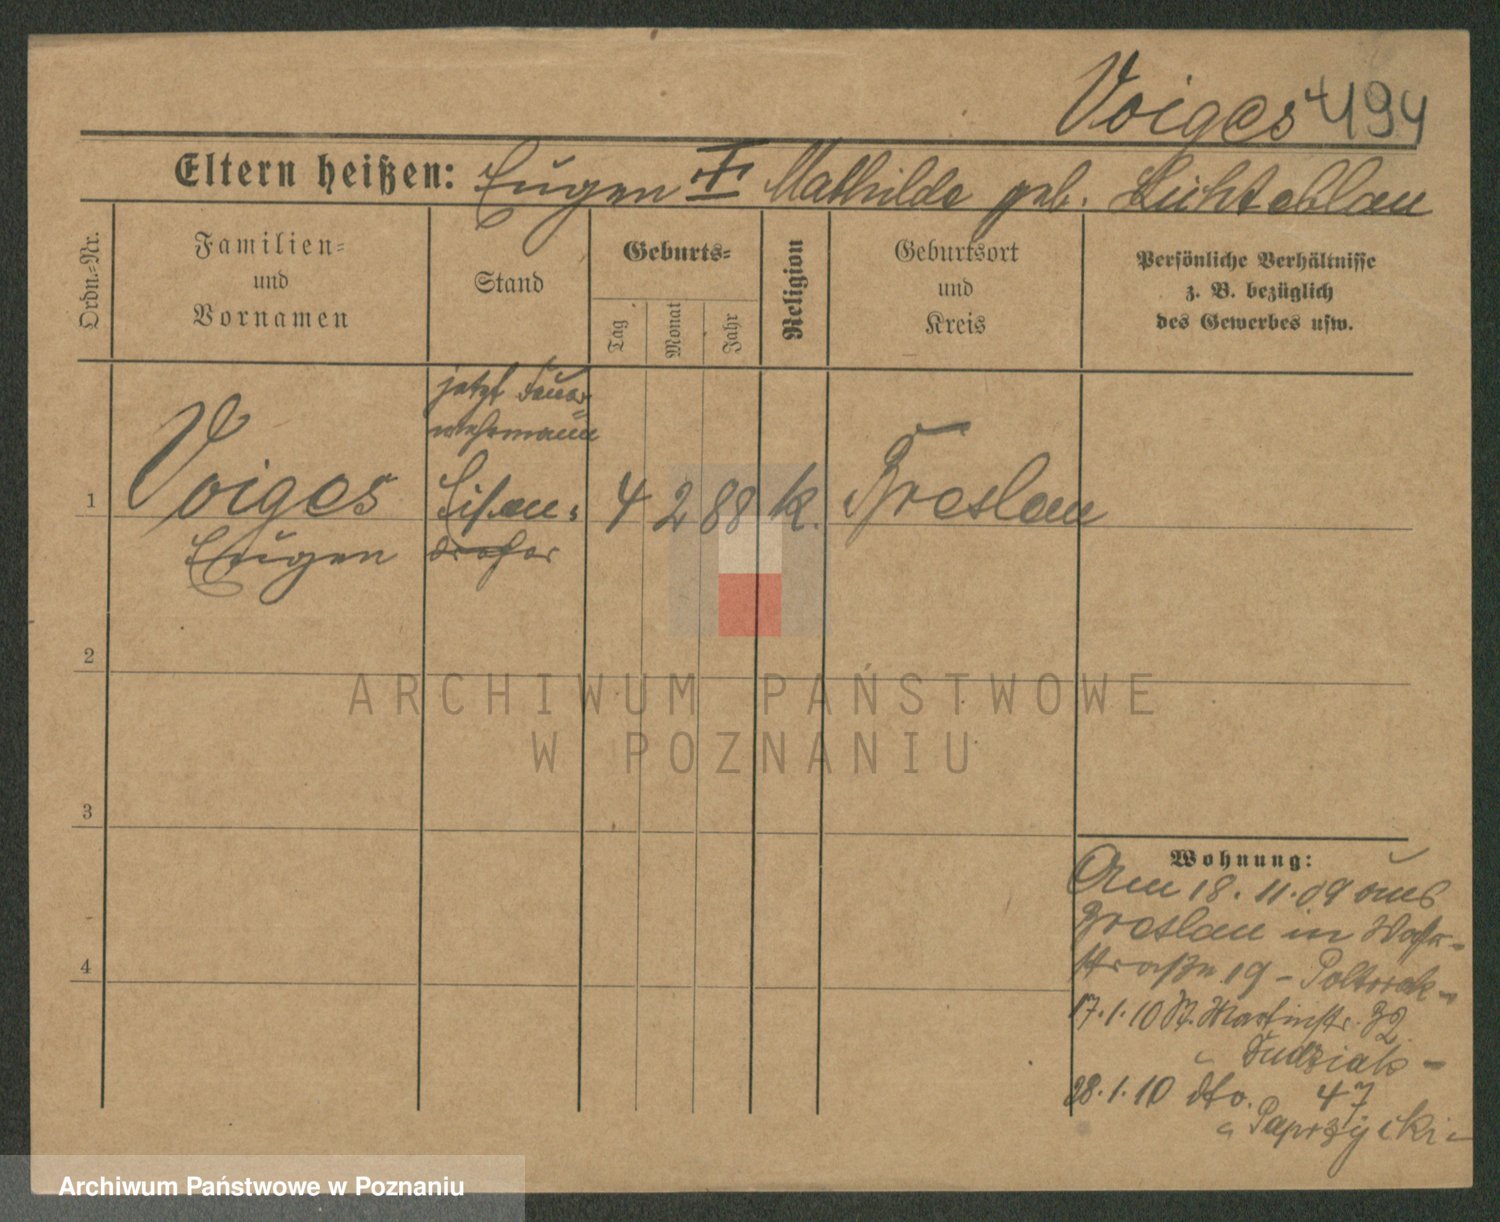 Voiges 4194
Eltern heißen: Eugen Mathilde geb. Lichteblau
Ordn.=Nr.
Familien=
und
Vornamen
Stand
Geburts=
Tag
Monat
Jahr
Religion
Geburtsort
und
Kreis
Persönliche Verhältnisse
z. B. bezüglich
des Gewerbes usw.
jetzt Feuer-
wehrmann
1 Voiges Eisen= 4 2 88 k. Breslau
Eugen dreher
2
3
4
Wohnung:
Am 18.11.09 aus
Breslau in
straße 19 -
17.1.10 St. Martinstr. 32
28.1.10 dto. 47
Paprzycki
ARCHIWUM PAŃSTWOWE
W POZNANIU
Archiwum Państwowe w Poznaniu